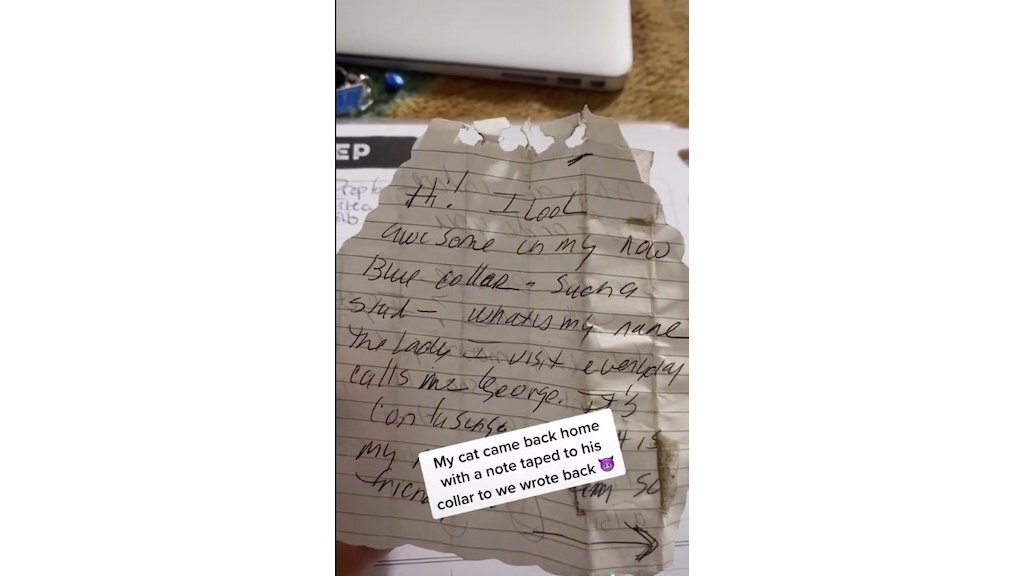 EP
Hi! I Look
awesome in my new
Blue collar - such a
stud - what is my name
The Lady I visit everyday
calls me George. It's
Confusing
my
My cat came back home
with a note taped to his
collar to we wrote back 😈